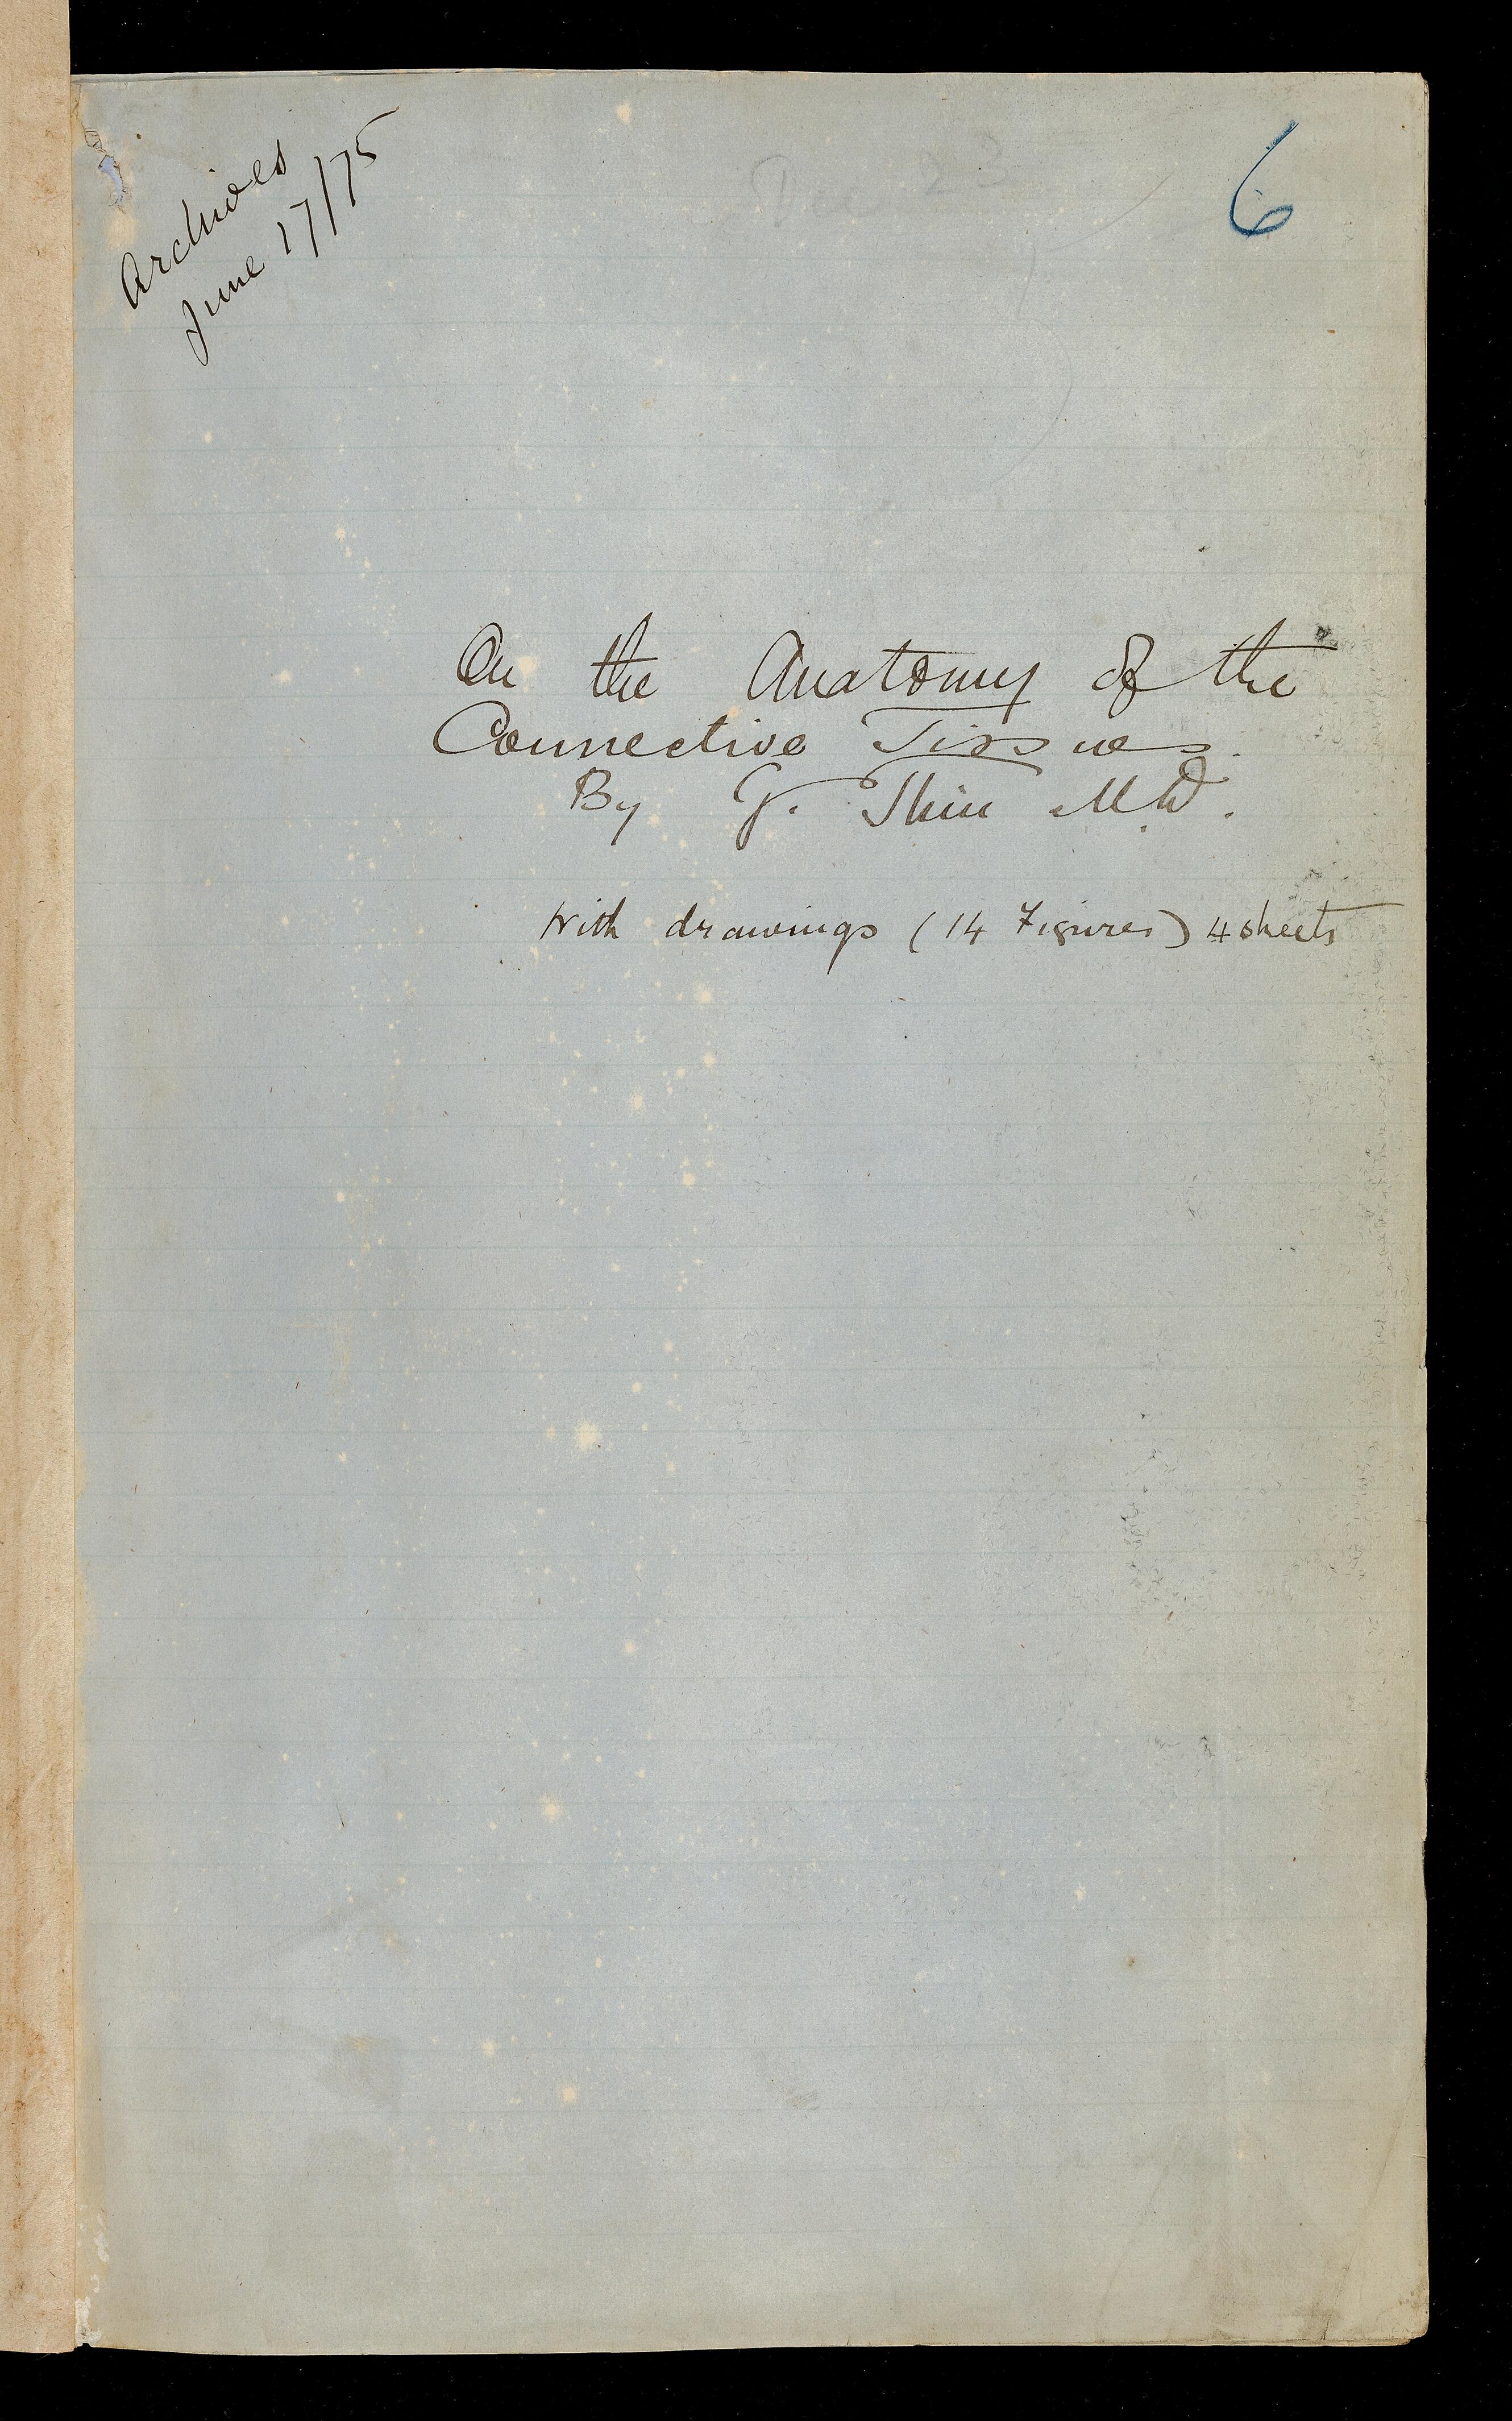 Archives
June 17/75
6
On the Anatomy of the
Connective Tissues.
By G. Thin M.D.
With drawings (14 Figures) 4 sheets